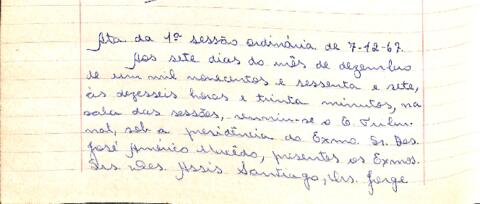 Ata da 1ª sessão ordinária de 7-12-67.
Aos sete dias do mês de dezembro
de um mil novecentos e sessenta e sete,
às dezesseis horas e trinta minutos, na
sala das sessões, reuniu-se o E. Tribu-
nal, sob a presidência do Exmo. Sr. Des.
José Américo Macêdo, presentes os Exmos.
Srs. Des. Assis Santiago, Drs. Jorge